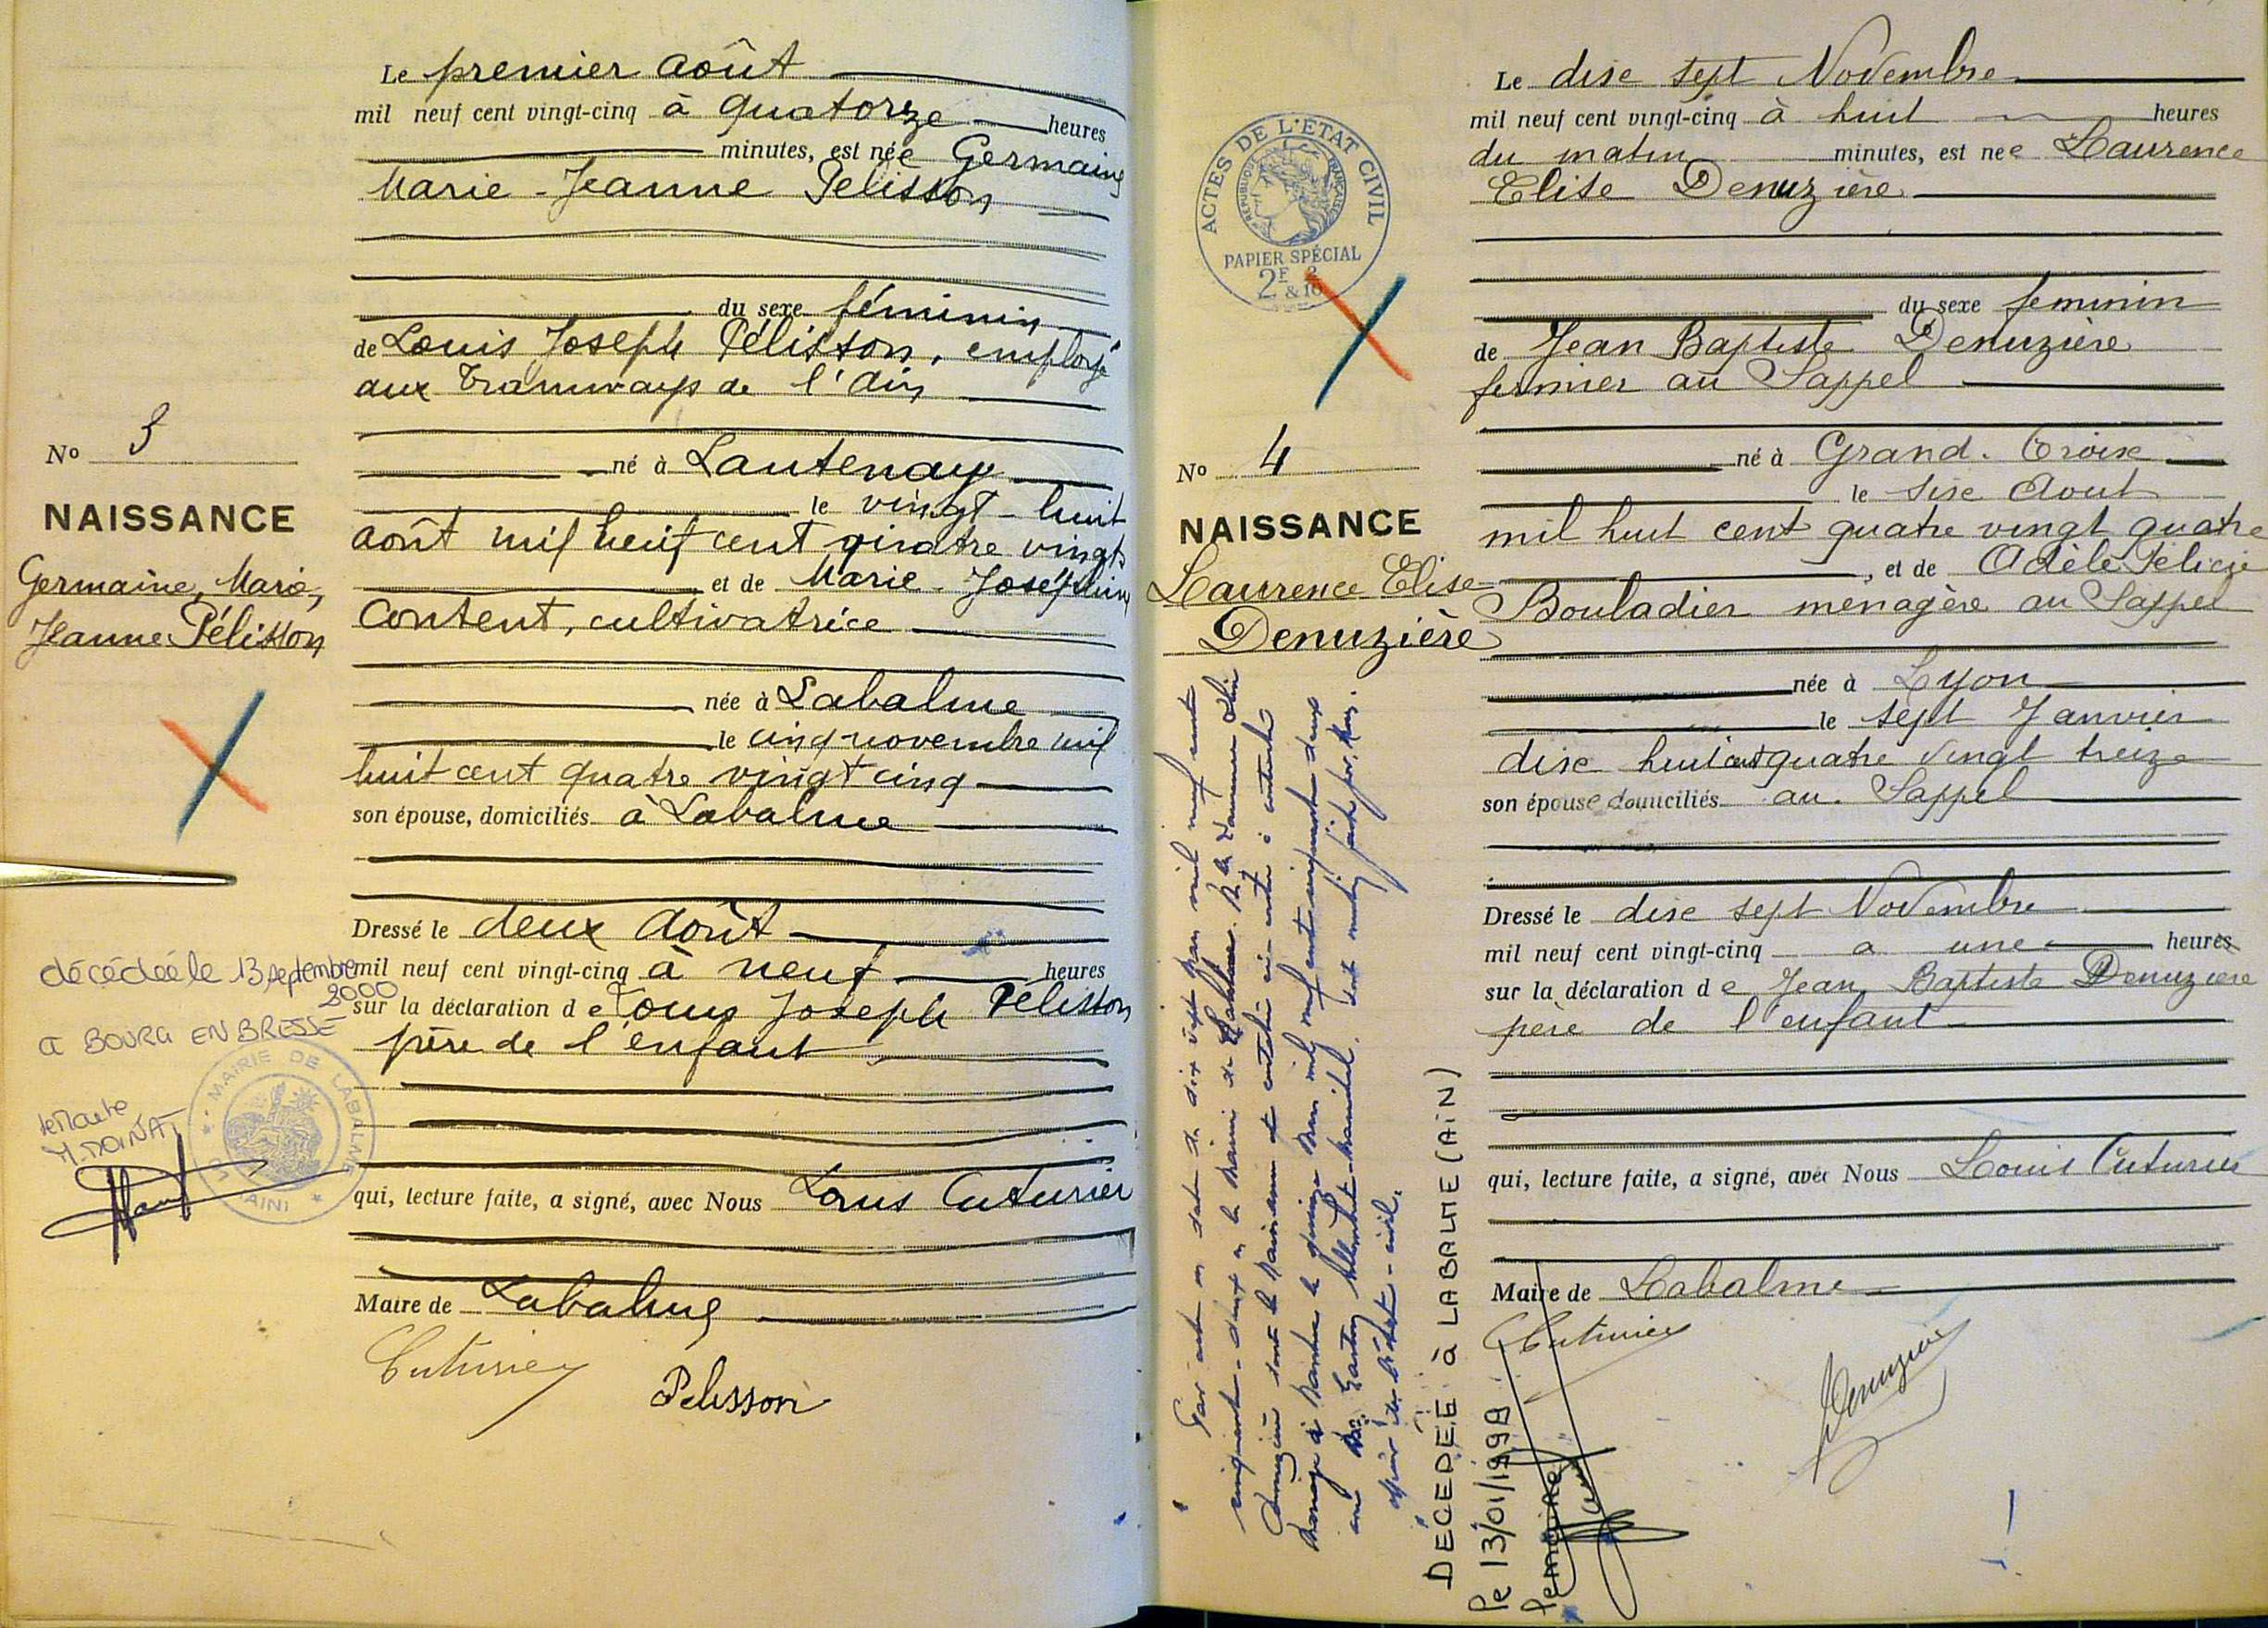 Le premier août
mil neuf cent vingt-cinq à quatorze heures
minutes, est née Germaine
Marie-Jeanne Pelisson
du sexe féminin
de Louis Joseph Pélisson, employé
aux Tramways de l'Ain
né à Lantenay
le vingt-huit
août mil huit cent quatre vingts
et de Marie-Joséphine
Content, cultivatrice
née à Labalme
le cinq novembre mil
huit cent quatre vingt cinq
son épouse, domiciliés à Labalme
Dressé le deux Août
mil neuf cent vingt-cinq à neuf heures
sur la déclaration de Louis Joseph Pélisson
père de l'enfant
qui, lecture faite, a signé, avec Nous Louis Cuturier
Maire de Labalme
Cuturier
Pelisson
No 3
NAISSANCE
Germaine, Marie,
Jeanne Pélisson
décédée le 13 septembre
2000
a BOURG EN BRESSE
le Maire
M. DOINAT
MAIRIE DE LABALME
(AIN)
ACTES DE L'ÉTAT CIVIL
RÉPUBLIQUE FRANÇAISE
PAPIER SPÉCIAL
2F & 2/10
No 4
NAISSANCE
Laurence Elise
Denuzière
Le dixe sept Novembre
mil neuf cent vingt-cinq à huit heures
du matin minutes, est née Laurence
Elise Denuzière
du sexe feminin
de Jean Baptiste Denuzière
fermier au Sappel
né à Grand. Croix
le sixe Aout
mil huit cent quatre vingt quatre
, et de Adèle Félicie
Bouladier menagère au Sappel
née à Lyon
le sept Janvier
dixe huit cent quatre vingt treize
son épouse domiciliés au Sappel
Dressé le dixe sept Novembre
mil neuf cent vingt-cinq a une heures
sur la déclaration de Jean Baptiste Denuzière
père de l'enfant
qui, lecture faite, a signé, avec Nous Louis Cuturier
Maire de Labalme
Cuturier
Denuzière
Par acte en date du dix sept mil neuf cent
cinquante-deux en la Mairie de Labalme. de la
Denuzière
mariage à le quinze mil neuf cent cinquante deux
officier de l'état-civil.
DÉCÉDÉE à LABALME (AIN)
le 13/01/1998
le maire